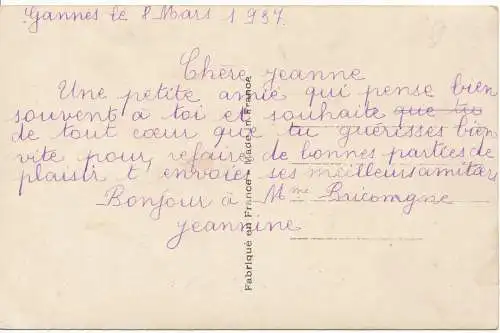 Gannes le 8 Mars 1937.
Chère jeanne
Une petite amie qui pense bien
souvent à toi et souhaite que tu
de tout cœur que tu guérisses bien
vite pour refaire de bonnes parties de
plaisir t envoie ses meilleurs amitiés
Bonjour à Mme Bricomgne
jeannine
Fabriqué en France - Made in France